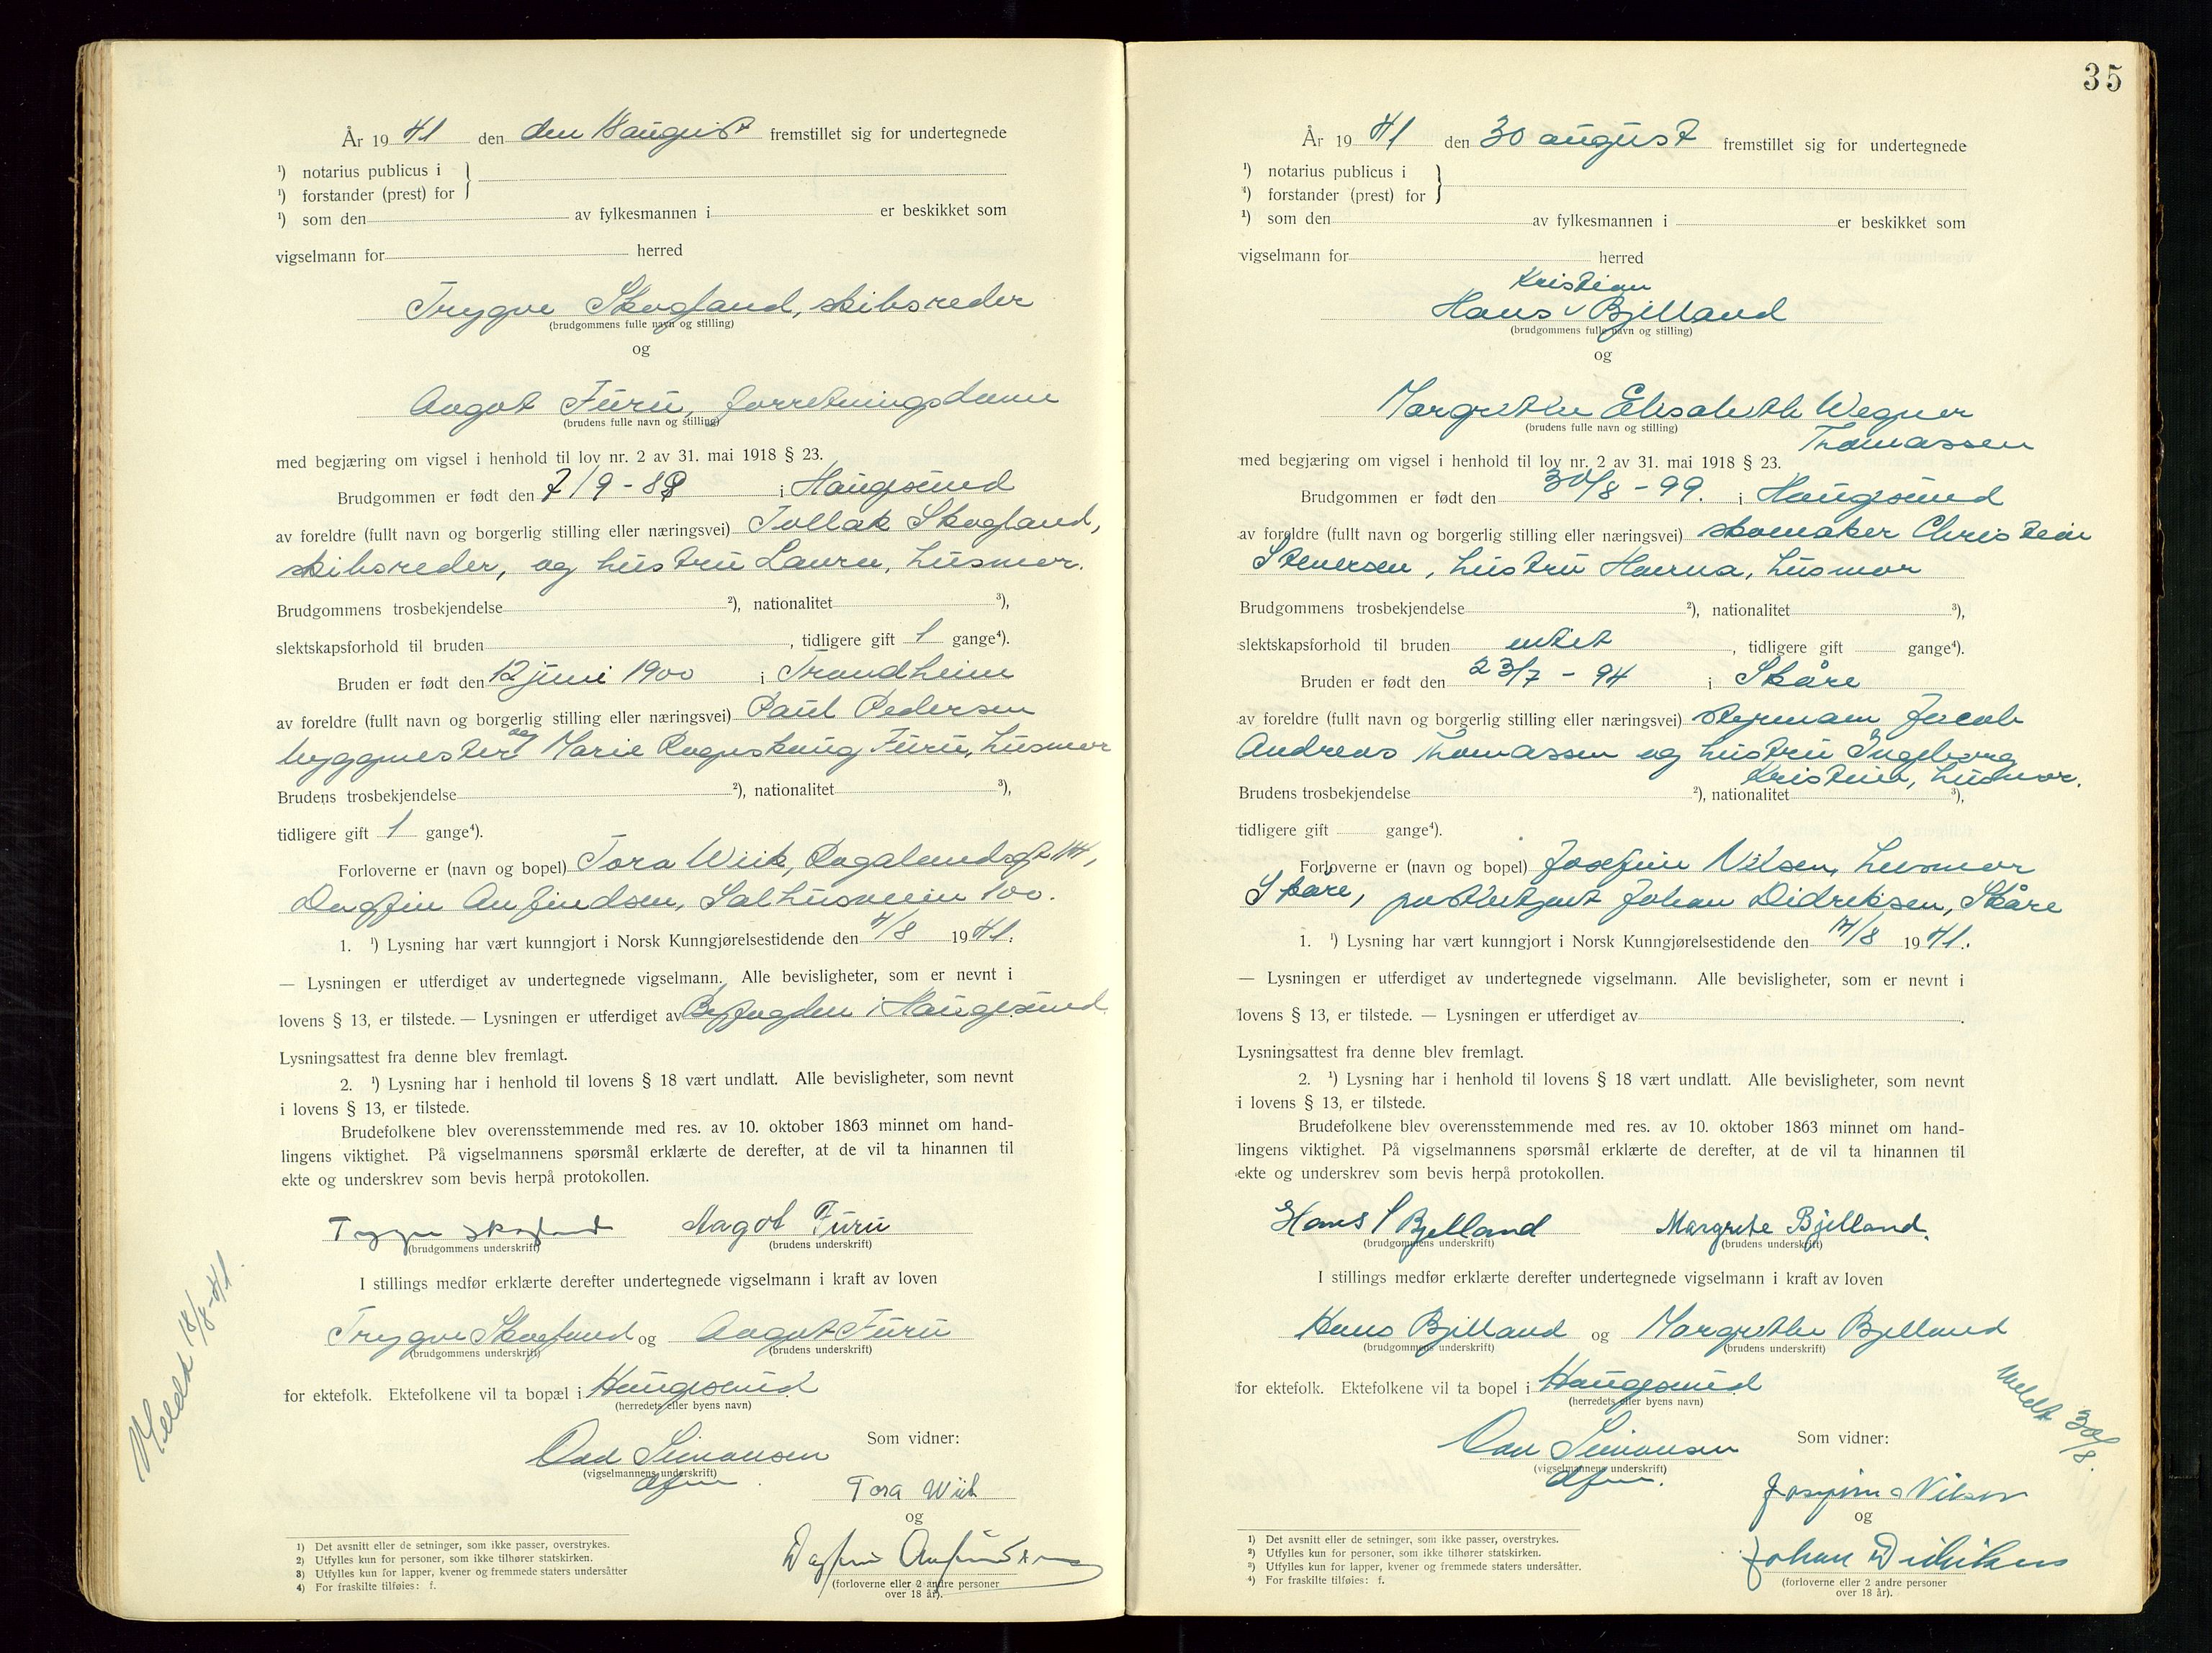 År 19 41 den den 18 august fremstillet sig for undertegnede
¹) notarius publicus i
¹) forstander (prest) for
¹) som den av fylkesmannen i er beskikket som
vigselmann for herred
Trygve Skogland, skibsreder
(brudgommens fulle navn og stilling)
og
Aagot Furu, forretningsdame
(brudens fulle navn og stilling)
med begjæring om vigsel i henhold til lov nr. 2 av 31. mai 1918 § 23.
Brudgommen er født den 7/9 - 88 i Haugesund
av foreldre (fullt navn og borgerlig stilling eller næringsvei) Tollak Skogland,
skibsreder, og hustru Laura, husmor.
Brudgommens trosbekjendelse ²), nationalitet ³),
slektskapsforhold til bruden , tidligere gift 1 gange⁴).
Bruden er født den 12 juni 1900 i Trondheim
av foreldre (fullt navn og borgerlig stilling eller næringsvei) Paul Pedersen
byggmester og Marie Furu, husmor
Brudens trosbekjendelse ²), nationalitet ³),
tidligere gift 1 gange⁴).
Forloverne er (navn og bopel) Tora Wiik, Rogalandsgt 141,
Dagfin Anfindsen, Salhusveien 100.
1. ¹) Lysning har vært kunngjort i Norsk Kunngjørelsestidende den 4/8 19 41.
— Lysningen er utferdiget av undertegnede vigselmann. Alle bevisligheter, som er nevnt i
lovens § 13, er tilstede. — Lysningen er utferdiget av Byfogden i Haugesund
Lysningsattest fra denne blev fremlagt.
2. ¹) Lysning har i henhold til lovens § 18 vært undlatt. Alle bevisligheter, som nevnt
i lovens § 13, er tilstede.
Brudefolkene blev overensstemmende med res. av 10. oktober 1863 minnet om hand-
lingens viktighet. På vigselmannens spørsmål erklærte de derefter, at de vil ta hinannen til
ekte og underskrev som bevis herpå protokollen.
Trygve Skogland Aagot Furu
(brudgommens underskrift) (brudens underskrift)
I stillings medfør erklærte derefter undertegnede vigselmann i kraft av loven
Trygve Skogland og Aagot Furu
(brudgommens underskrift) (brudens underskrift)
for ektefolk. Ektefolkene vil ta bopæl i Haugesund
(herredets eller byens navn)
Odd Simonsen
(vigselmannens underskrift)
dfm.
Som vidner:
Tora Wiik
og
Dagfin Anfindsen
(forloverne eller 2 andre personer
over 18 år).
Meldt 18/8-41.
1) Det avsnitt eller de setninger, som ikke passer, overstrykes.
2) Utfylles kun for personer, som ikke tilhører statskirken.
3) Utfylles kun for lapper, kvener og fremmede staters undersåtter
4) For fraskilte tilføies: f.
35
År 19 41 den 30 august fremstillet sig for undertegnede
¹) notarius publicus i
¹) forstander (prest) for
¹) som den av fylkesmannen i er beskikket som
vigselmann for herred
Kristian
Hans v Bjelland
(brudgommens fulle navn og stilling)
og
Margrethe Elisabeth Wegner
Thomassen
(brudens fulle navn og stilling)
med begjæring om vigsel i henhold til lov nr. 2 av 31. mai 1918 § 23.
Brudgommen er født den 30/8 - 99. i Haugesund
av foreldre (fullt navn og borgerlig stilling eller næringsvei) skomaker Christian
Stenersen, hustru Hanna, husmor
Brudgommens trosbekjendelse ²), nationalitet ³),
slektskapsforhold til bruden intet , tidligere gift gange⁴).
Bruden er født den 23/7 - 94 i Skåre
av foreldre (fullt navn og borgerlig stilling eller næringsvei) styrmann Jacob
Andreas Thomassen og hustru Ingeborg
Kristine, husmor.
Brudens trosbekjendelse ²), nationalitet ³),
tidligere gift gange⁴).
Forloverne er (navn og bopel) Josefine Nilsen, husmor
Skåre, postbetjent Johan Didriksen, Skåre
1. ¹) Lysning har vært kunngjort i Norsk Kunngjørelsestidende den 14/8 19 41.
— Lysningen er utferdiget av undertegnede vigselmann. Alle bevisligheter, som er nevnt i
lovens § 13, er tilstede. — Lysningen er utferdiget av .
Lysningsattest fra denne blev fremlagt.
2. ¹) Lysning har i henhold til lovens § 18 vært undlatt. Alle bevisligheter, som nevnt
i lovens § 13, er tilstede.
Brudefolkene blev overensstemmende med res. av 10. oktober 1863 minnet om hand-
lingens viktighet. På vigselmannens spørsmål erklærte de derefter, at de vil ta hinannen til
ekte og underskrev som bevis herpå protokollen.
Hans S Bjelland Margrete Bjelland.
(brudgommens underskrift) (brudens underskrift)
I stillings medfør erklærte derefter undertegnede vigselmann i kraft av loven
Hans Bjelland og Margrethe Bjelland
(brudgommens underskrift) (brudens underskrift)
for ektefolk. Ektefolkene vil ta bopel i Haugesund
(herredets eller byens navn)
Odd Simonsen
(vigselmannens underskrift)
dfm.
Meldt 30/8.
Som vidner:
Josefine Nilsen
og
Johan Didriksen
(forloverne eller 2 andre personer
over 18 år).
¹) Det avsnitt eller de setninger, som ikke passer, overstrykes.
²) Utfylles kun for personer, som ikke tilhører statskirken.
³) Utfylles kun for lapper, kvener og fremmede staters undersåtter.
⁴) For fraskilte tilføies: f.